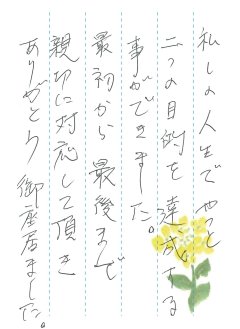 私しの人生でやっと
二つの目的を達成する
事ができました。
最初から最後まで
親切に対応して頂き
ありがとう御座居ました。